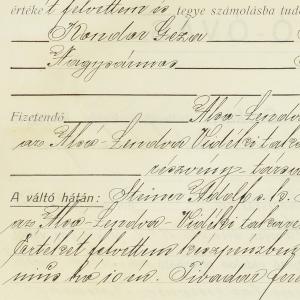 értéket felvettem és tegye számolásba tud
Kondor Géza
Nagysármás
Fizetendő Alsó-Lendva
az Alsó-Lendva Vidéki taka
részvény társa
A váltó hátán: Steiner Adolf s. k.
az Alsó-Lendva-Vidéki takare
Értékét felvettem készpénzben
hó 10 én. Tibadar